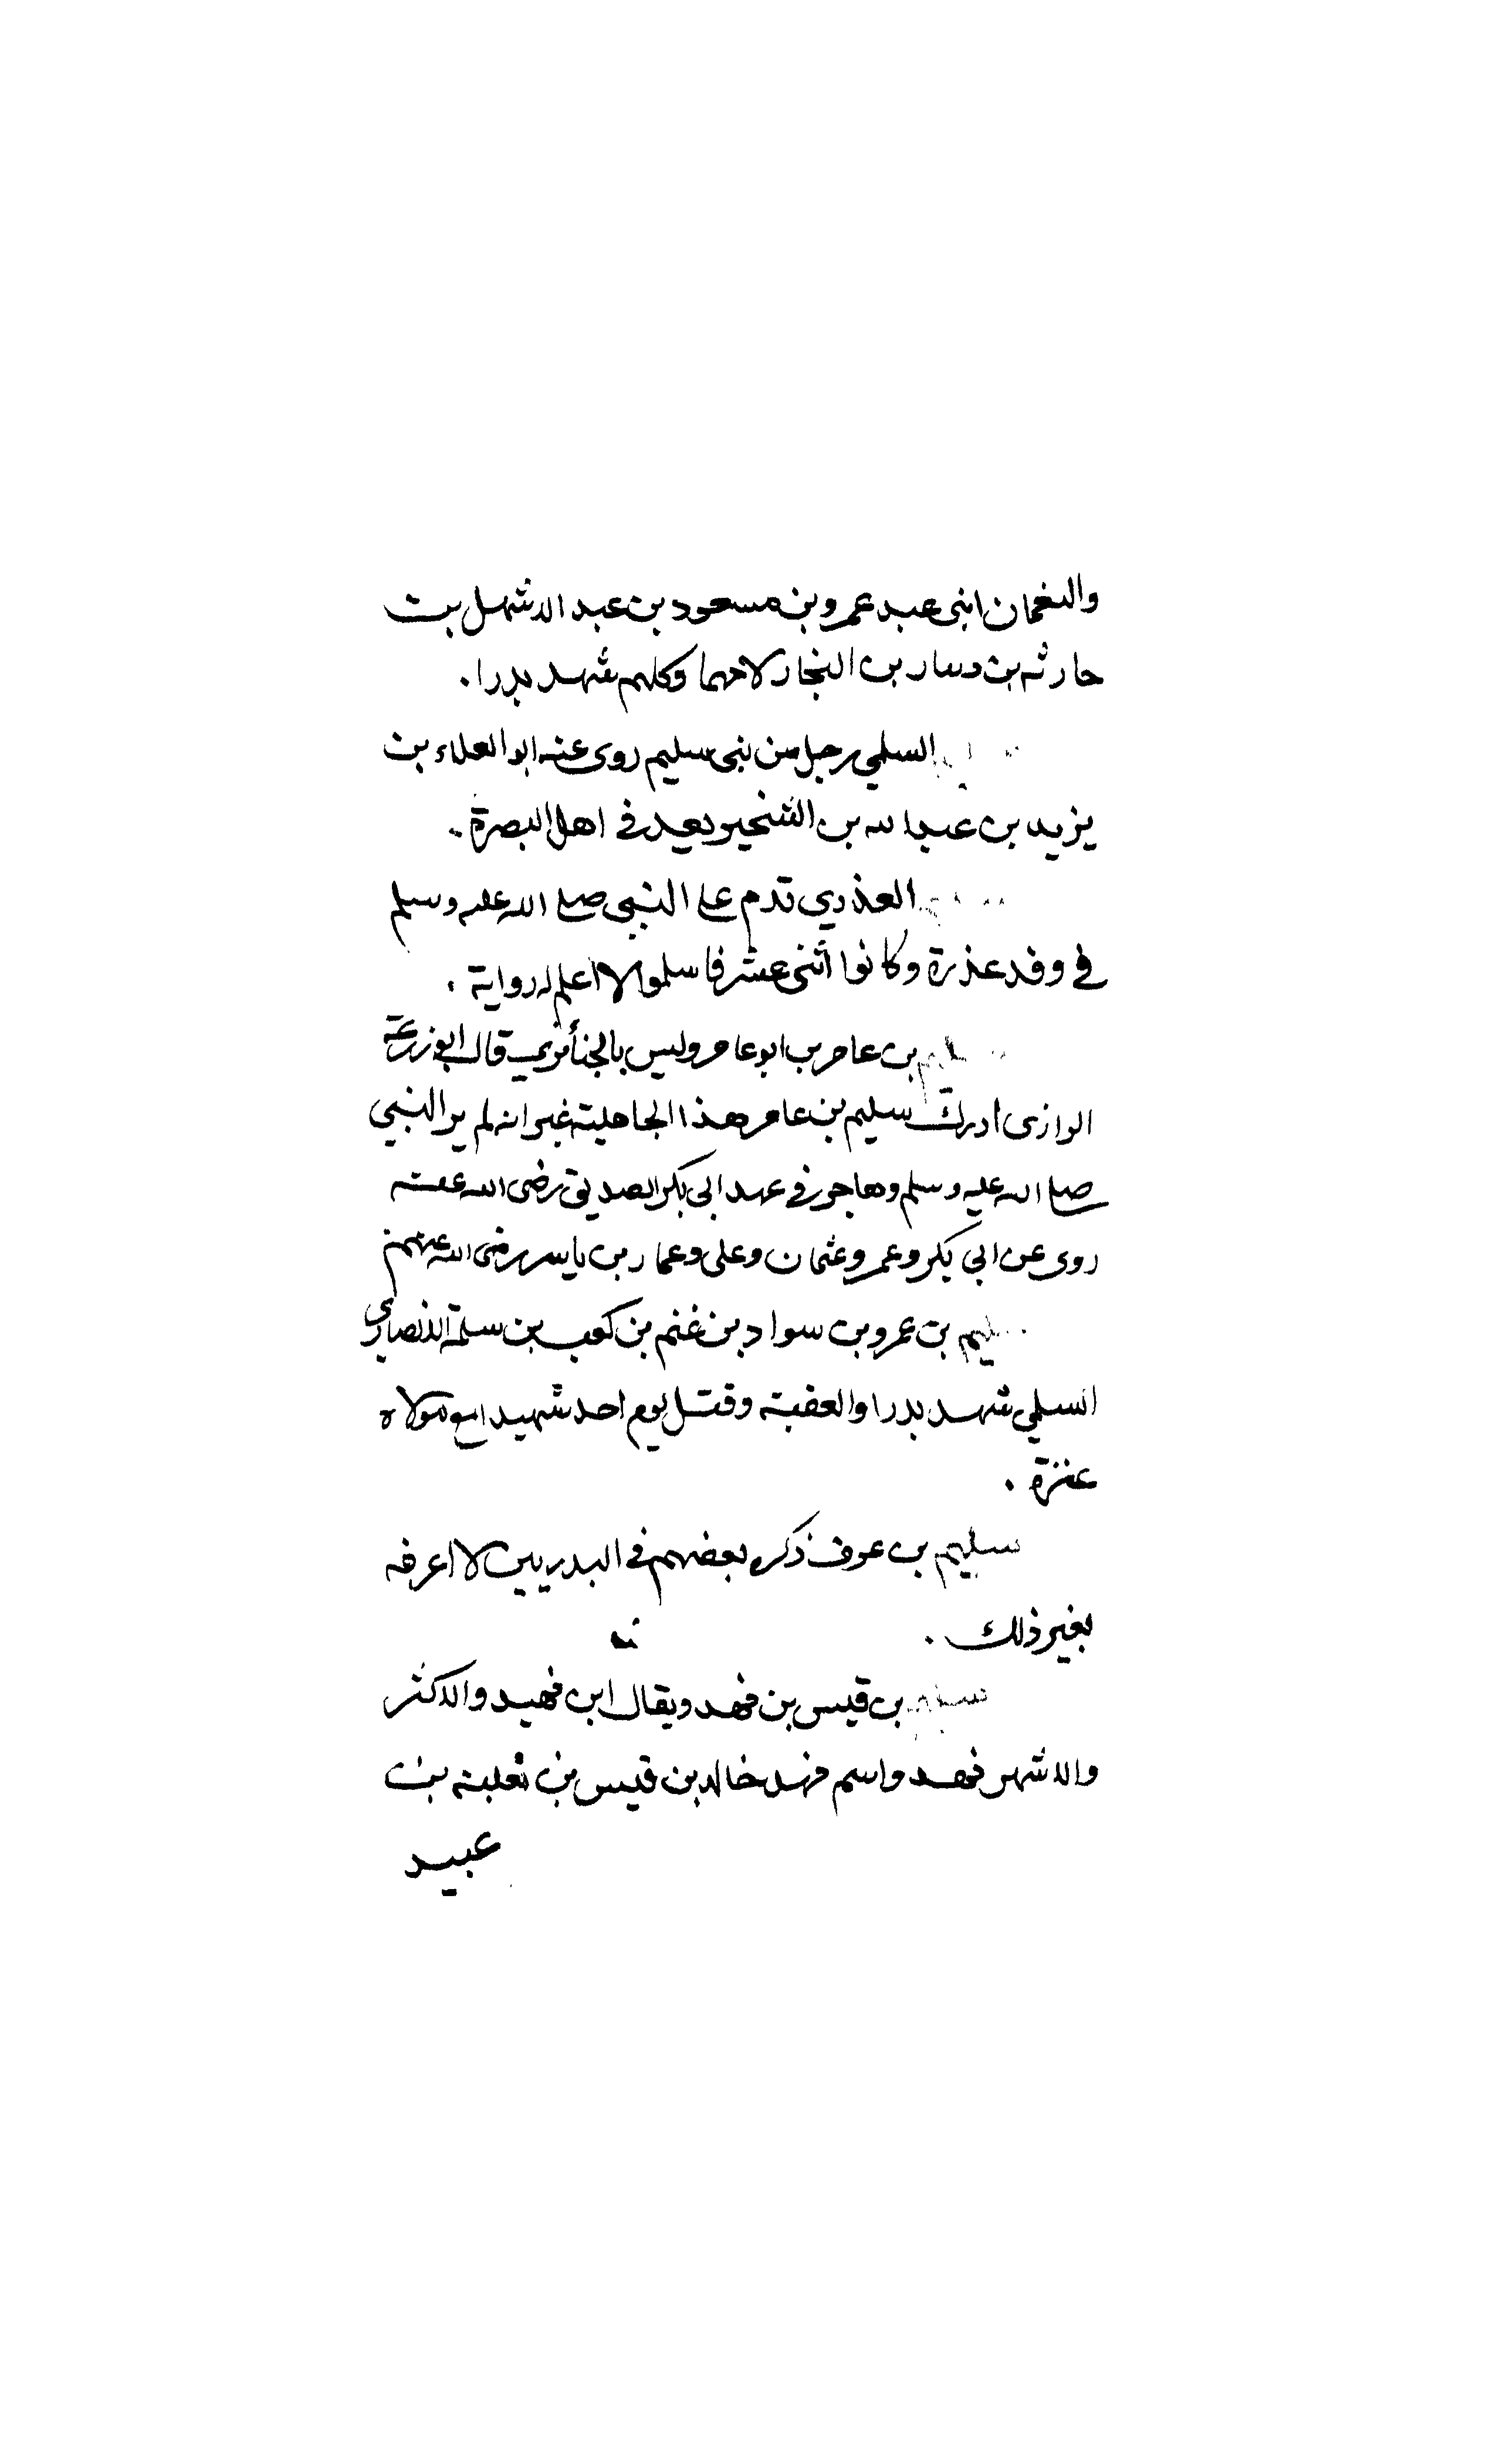 والنعمان ابنى عبد عمرو بن مسعود بن عبد الاشهل بن
حارثه بن دينار بن النجار لامهما وكلهم شهد بدرا .
السلمي رجل من بنى سليم روى عنه ابو العلاء بن
يزيد بن عبد الله بن الشخير يعد في اهل البصرة .
العذري قدم على النبي صلى الله عليه وسلم
في وفد عذرة وكانوا أثنى عشر فاسلموا لا اعلم له رواية .
سليم بن عامر ابو عامر وليس بالخبأئري قال ابو زرعة
الرازى ادرك سليم بن عامر هذا الجاهلية غير انه لم ير النبي
صلى الله عليه وسلم وهاجر في عهد ابى بكر الصديق رضى الله عنه
روى عن ابي بكر وعمر وعثمان وعلى وعمار بن ياسر رضى الله عنهم
سليم بن عمرو بن سواد بن غنم بن كعب بن سلمة الانصاري
السلمي شهد بدرا والعقبة وقتل يوم احد شهيدا مع مولاه
عنزة .
سليم بن عوف ذكره بعضهم في البدريين لا اعرفه
بغير ذلك .
سليم بن قيس بن فهد ويقال ابن فهيد والاكثر
والاشهر فهد واسم فهد خالد بن قيس بن ثعلبة بن
عبيد